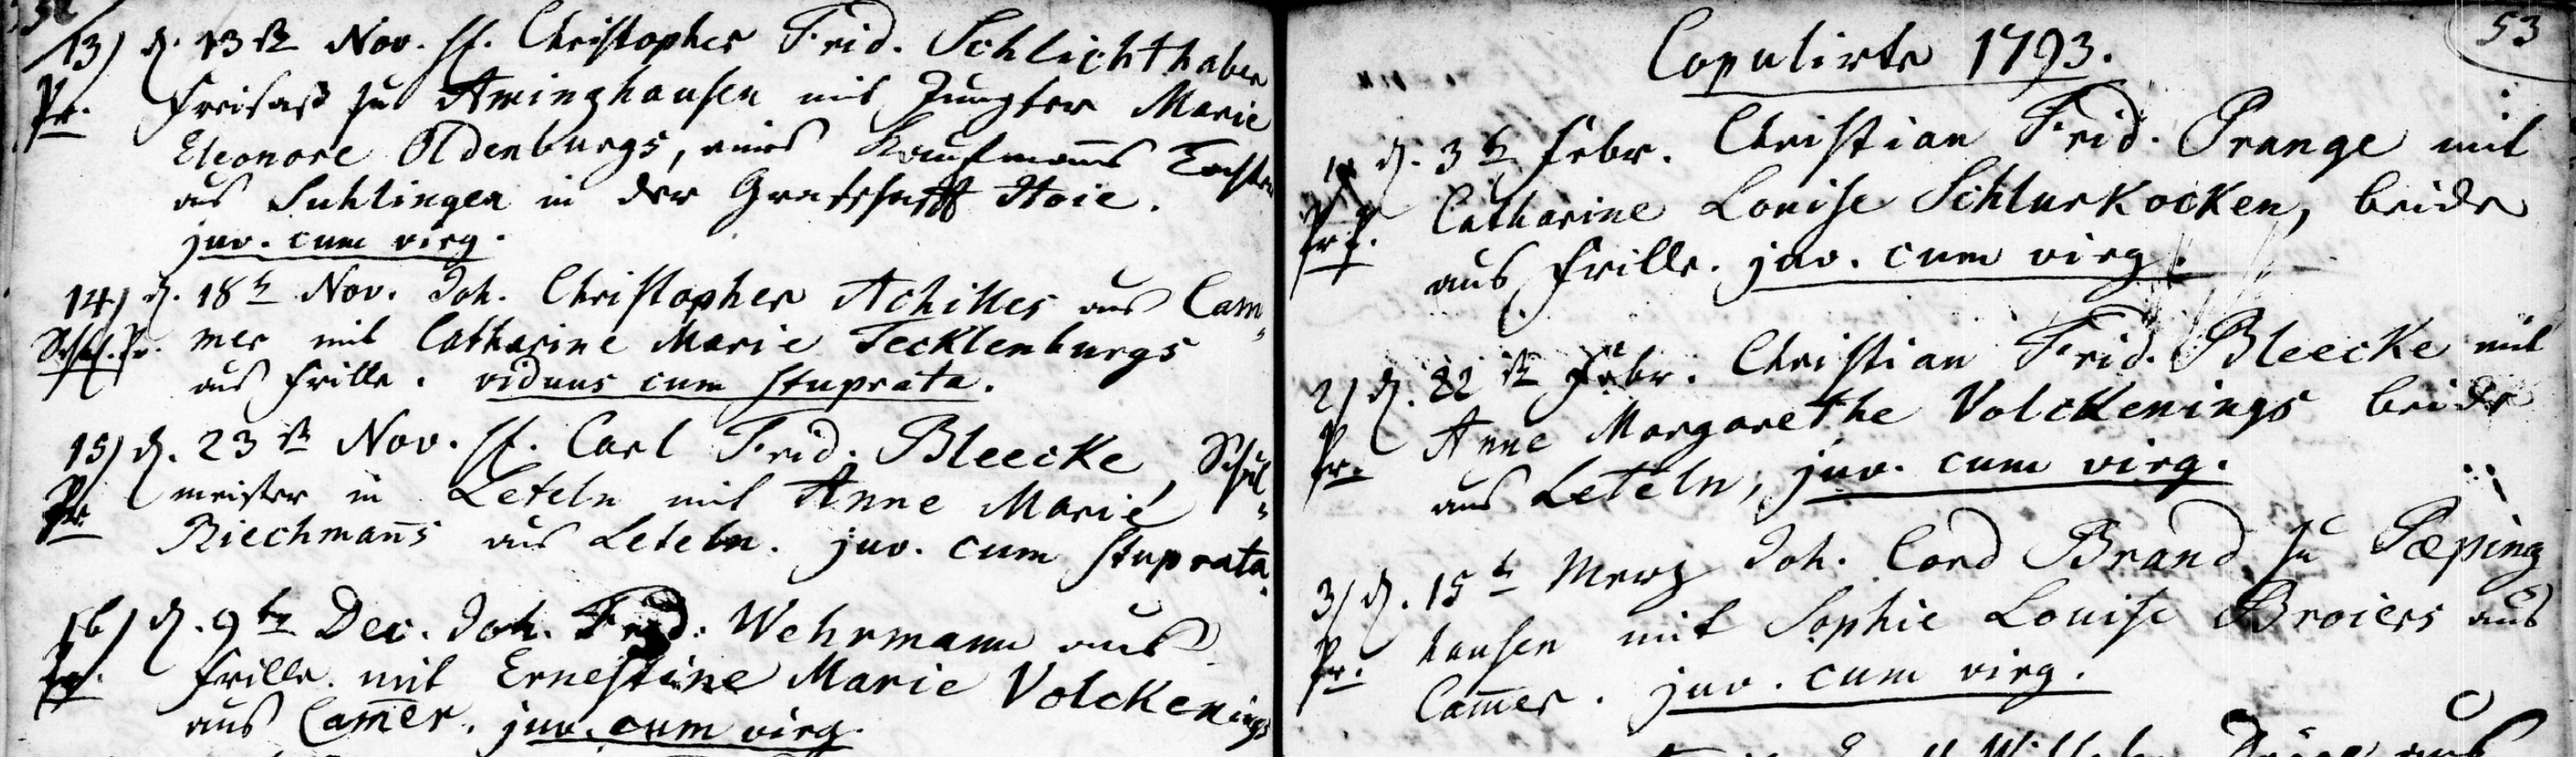 13) d. 13t Nov. H. Christopher Frid. Schlichthaber
Pr. Freisaß zu Aminghausen mit Jungfer Marie
Eleonore Oldenburgs, eines Kaufmans Tochter
aus Suhlingen in der Grafschafft Hoie.
juv. cum virg.
14) d. 18t Nov. Joh. Christopher Achilles aus Cam„
mer mit Catharine Marie Tecklenburgs
aus Frille. viduus cum stuprata.
15) d. 23t Nov. H. Carl Frid. Bleecke, Schul„
Pr. meister in Leteln mit Anne Marie
Riechmans aus Leteln. juv. cum stuprata.
16) d. 9t Dec. Joh. Frid. Wehrmann aus
Pr. Frille mit Ernestine Marie Volckenings
aus Camer. juv. cum virg.
53
Copulirte 1793.
1. d. 3t Febr. Christian Frid. Prange mit
Catharine Louise Schlurkocken, beide
aus Frille. juv. cum virg.
2) d. 22t Febr. Christian Frid. Bleecke mit
Pr. Anne Margarethe Volckenings beide
aus Leteln, juv. cum virg.
3) d. 15t Merz Joh. Cord Brand zu Pæping
Pr. hausen mit Sophie Louise Broiers aus
Camer. juv. cum virg.